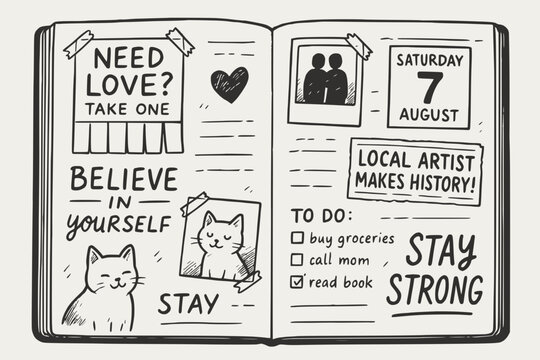 NEED
LOVE?
TAKE ONE
BELIEVE
IN
YOURSELF
STAY
SATURDAY
7
AUGUST
LOCAL ARTIST
MAKES HISTORY!
TO DO:
buy groceries
call mom
read book
STAY
STRONG